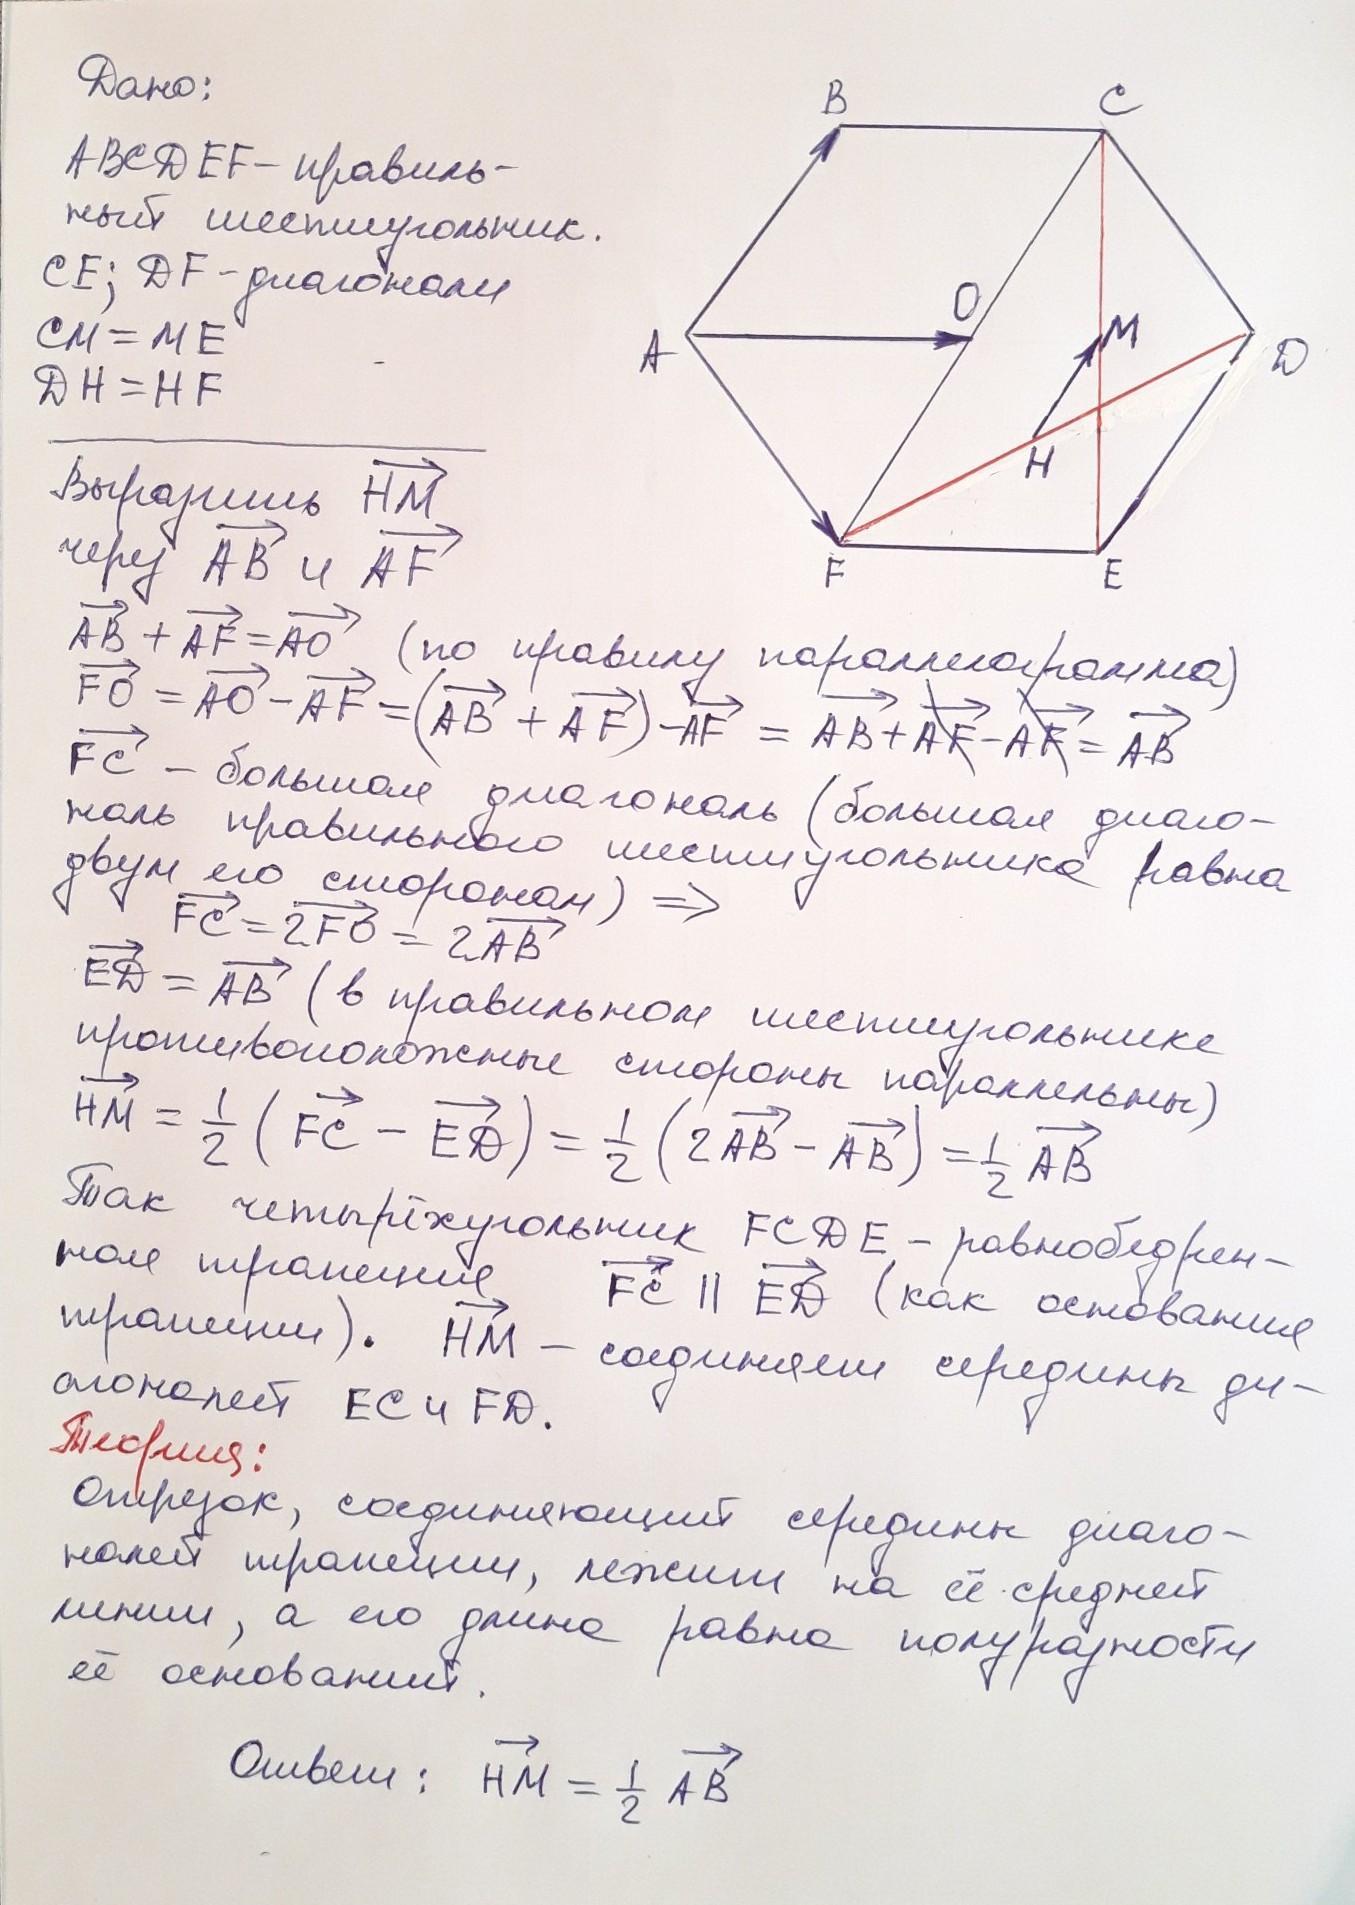 Дано:
ABCDEF – правиль-
ный шестиугольник.
CE; DF – диагонали
CM = ME
DH = HF
Выразить HM⃗
через AB⃗ и AF⃗
B
C
O
M
A
D
H
F
E
AB⃗ + AF⃗ = AO⃗ (по правилу параллелограмма)
FO⃗ = AO⃗ - AF⃗ = (AB⃗ + AF⃗) - AF⃗ = AB⃗ + AF⃗ - AF⃗ = AB⃗
FC⃗ – большая диагональ (большая диаго-
наль правильного шестиугольника равна
двум его сторонам) ⇒
FC⃗ = 2FO⃗ = 2AB⃗
ED⃗ = AB⃗ (в правильном шестиугольнике
противоположные стороны параллельны)
HM⃗ = 1/2 (FC⃗ - ED⃗) = 1/2 (2AB⃗ - AB⃗) = 1/2 AB⃗
Так четырёхугольник FCDE – равнобедрен-
ная трапеция FC⃗ || ED⃗ (как основания
трапеции). HM⃗ – соединяет середины ди-
агоналей EC и FD.
Теория:
Отрезок, соединяющий середины диаго-
налей трапеции, лежит на её средней
линии, а его длина равна полуразности
её оснований.
Ответ: HM⃗ = 1/2 AB⃗